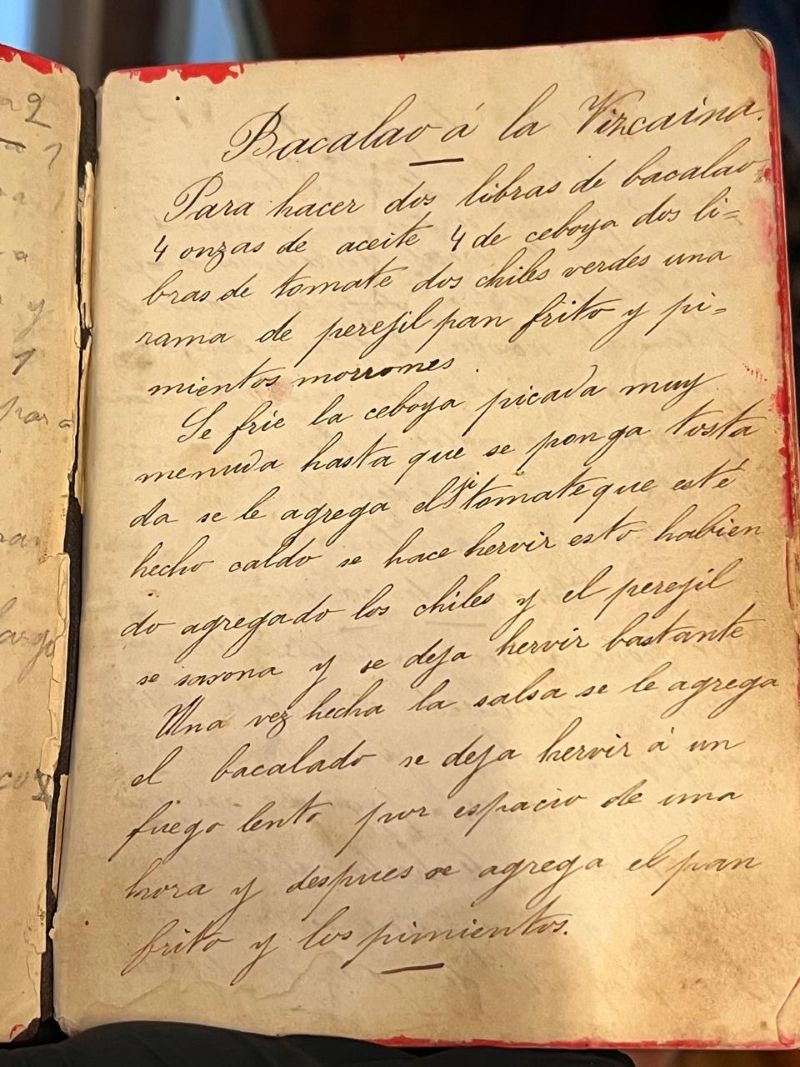 Bacalao á la Vizcaina.
Para hacer dos libras de bacalao,
4 onzas de aceite 4 de ceboya dos li=
bras de tomate dos chiles verdes una
rama de perejil pan frito y pi=
mientos morrones.
Se frie la ceboya picada muy
menuda hasta que se ponga tosta
da se le agrega el jitomate que esté
hecho caldo se hace hervir esto habien
do agregado los chiles y el perejil
se sasona y se deja hervir bastante
Una vez hecha la salsa se le agrega
el bacalado se deja hervir á un
fuego lento por espacio de una
hora y despues se agrega el pan
frito y los pimientos.
2
1
y
1
para